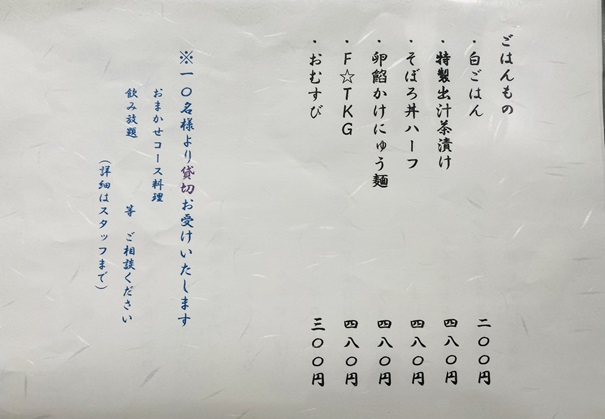 ごはんもの
・白ごはん 二〇〇円
・特製出汁茶漬け 四八〇円
・そぼろ丼ハーフ 四八〇円
・卵餡かけにゅう麺 四八〇円
・F☆TKG 四八〇円
・おむすび 三〇〇円
※一〇名様より貸切お受けいたします
おまかせコース料理
飲み放題 等 ご相談ください
(詳細はスタッフまで)